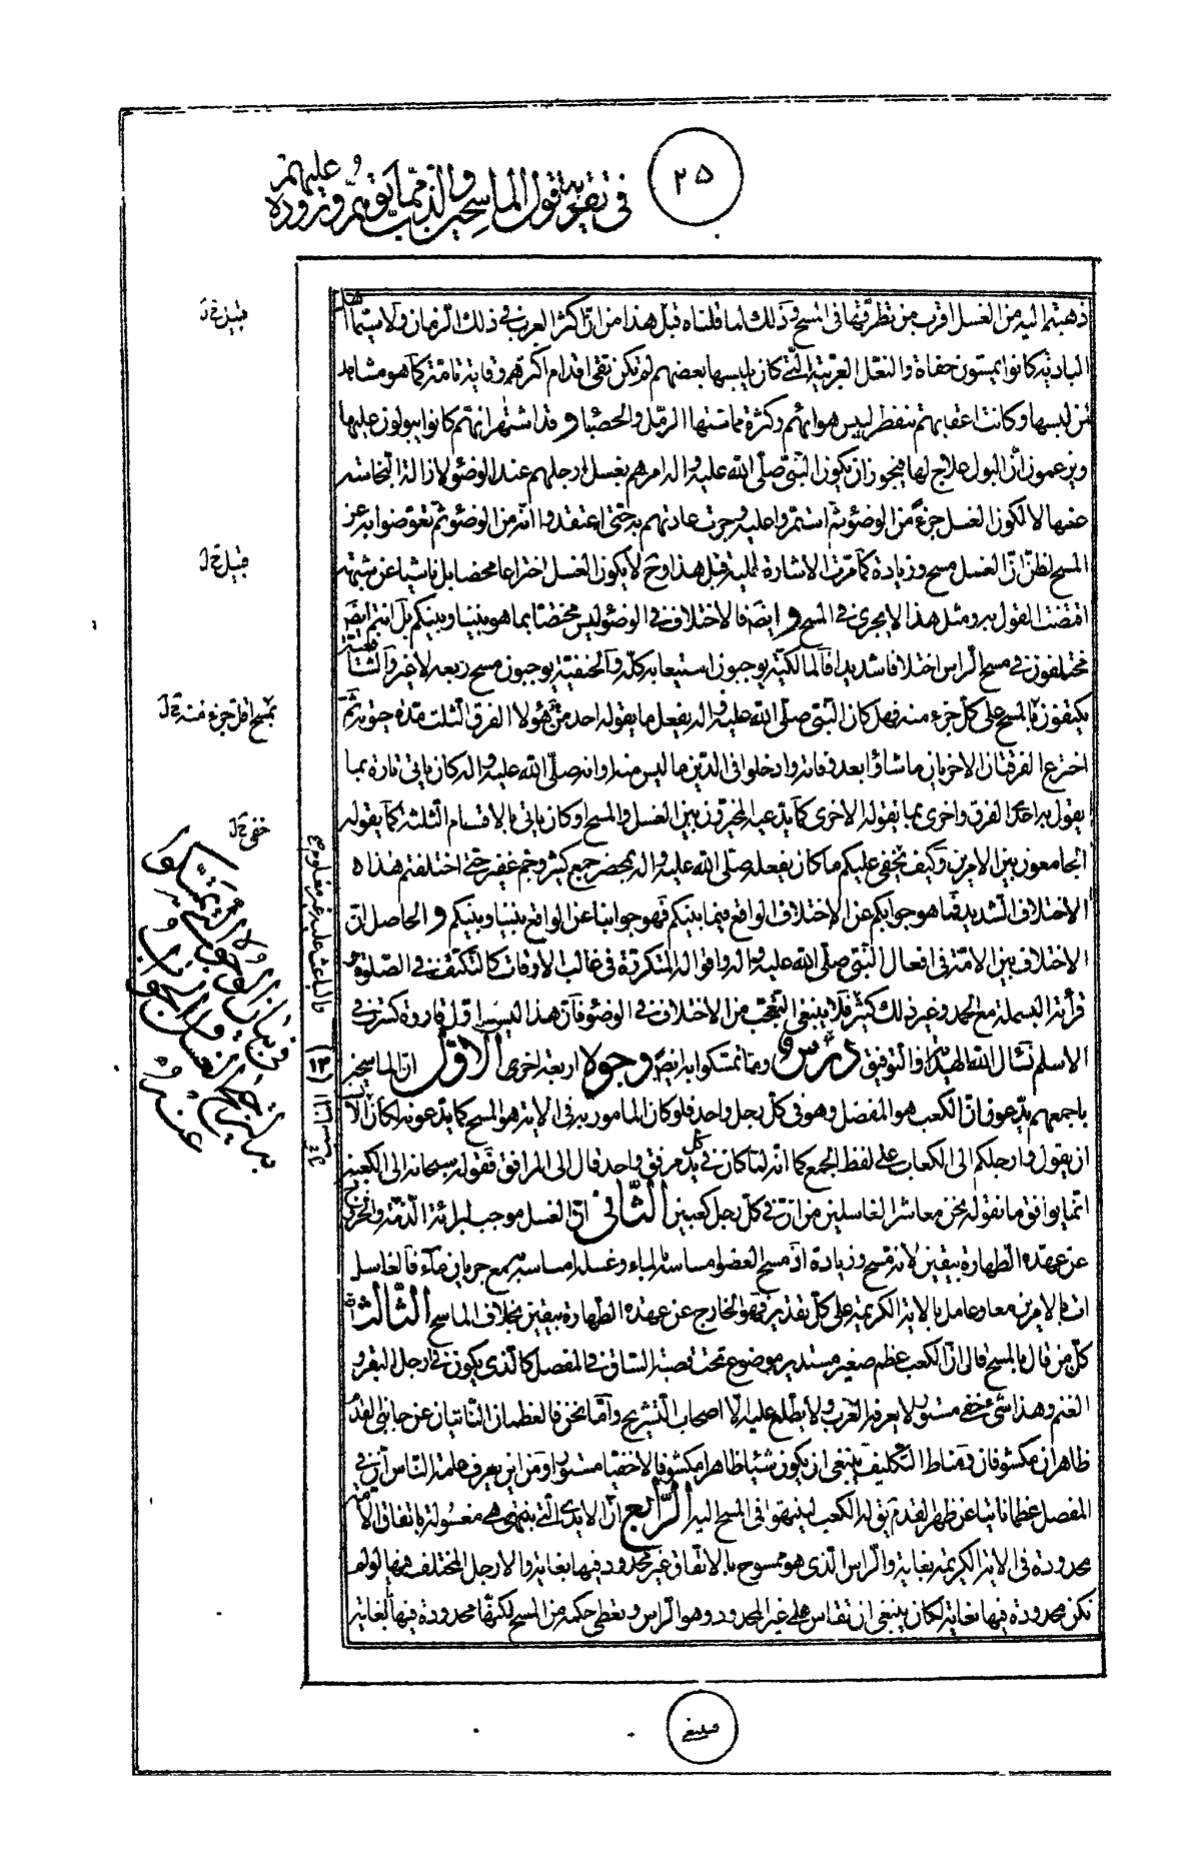 ٢٥
في تقوية قول الماسحين والذب عما يتوهم وروده عليهم
ذهبتم اليه من الغسل اقرب من تطرقها في المسح وذلك لما قلناه قبل هذا من ان اكثر العرب في ذلك الزمان ولا سيما اهل
البادية كانوا يمشون حفاة والنعل العربية التي كان يلبسها بعضهم لم تكن تقي اقدام اكثرهم وقاية تامة كما هو مشاهد
ممن لبسها وكانت اعقابهم تنفطر ليبس هوائهم وكثرة مماستها الرمل والحصباء وقد اشتهر انهم كانوا يبولون عليها
ويزعمون ان البول علاج لها فيجوز ان يكون النبي صلى الله عليه واله امرهم بغسل ارجلهم عند الوضوء لازالة النجاسة
عنها لا لكون الغسل جزءً من الوضوء ثم استمروا عليه وجرت عادتهم به حتى اعتقدوا انه من الوضوء ثم تعوضوا به عن
المسح لظن ان الغسل مسح وزيادة كما مرت الاشارة اليه قبل هذا وح لا يكون الغسل اختراعا محضا بل ناشيا عن شبهة
اقتضت القول به ومثل هذا لا يجري في المسح وايضا فالاختلاف في الوضوء ليس مختصا بما هو بيننا وبينكم بل انتم ايضا
مختلفون في مسح الراس اختلافا شديدا فالمالكية يوجبون استيعابه كله والحنفية يوجبون مسح ربعه لا غير والشافعية
يكتفون بالمسح على كل جزء منه فهل كان النبي صلى الله عليه واله يفعل ما يقوله احد من هؤلا الفرق الثلث مدة حيوته ثم
اخترع الفرقتان الاخريان ما شاؤا بعد وفاته وادخلوا في الدين ما ليس منه او انه صلى الله عليه واله كان ياتي تارة بما
يقول به احد الفرق واخرى بما يقوله الاخرى كما يدعيه المخيرون بين الغسل والمسح او كان ياتي بالاقسام الثلثة كما يقوله
الجامعون بين الامرين وكيف يخفى عليكم ما كان يفعله صلى الله عليه واله بمحضر جمع كثير وجم غفير حتى اختلفتم هذا
الاختلاف الشديد فما هو جوابكم عن الاختلاف الواقع فيما بينكم فهو جوابنا عن الواقع بيننا وبينكم والحاصل ان
الاختلاف بين الامة في افعال النبي صلى الله عليه واله واقواله المتكررة في غالب الاوقات كالتكتف في الصلوة و
قرائة البسملة مع الحمد وغير ذلك كثير فلا ينبغي التعجب من الاختلاف في الوضوء فان هذا ليس اول قارورة كسرت في
الاسلم نسال الله الهداية والتوفيق درس ومما تمسكوا به ايضا وجوه اربعة اخرى الاول ان الماسحين
باجمعهم يدعون ان الكعب هو المفصل وهو في كل رجل واحد فلو كان المامور به في الاية هو المسح كما يدعونه لكان الانسب
ان يقول وارجلكم الى الكعاب على لفظ الجمع كما انه لما كان في كل يد مرفق واحد قال الى المرافق فقوله سبحانه الى الكعبين
انما يوافق ما نقوله نحن معاشر الغاسلين من ان في كل رجل كعبين الثاني ان الغسل موجب لبرائة الذمة والخروج
عن عهدة الطهارة بيقين لانه مسح وزيادة اذ مسح العضو امساسه الماء وغسله امساسه به مع جريان ماء فالغاسل
ات بالامرين معا وعامل بالاية الكريمة على كل تقدير فهو الخارج عن عهدة الطهارة بيقين بخلاف الماسح الثالث ان
كل من قال بالمسح قال ان الكعب عظم صغير مستدير موضوع تحت قصبة الساق في المفصل كالذي يكون في ارجل البقر و
الغنم وهذا شيء خفي مستور لا يعرفه العرب ولا يطلع عليه الا اصحاب التشريح واما نحن فالعظمان الناتيان عن جانبي القدم
ظاهران مكشوفان ومناط التكليف ينبغي ان يكون شيئا ظاهرا مكشوفا لا خفيا مستورا ومن اين يعرف عامة الناس ان في
المفصل عظما ناتيا عن ظهر القدم يق له الكعب لينتهوا في المسح اليه الرابع ان الايدي التي هي مغسولة باتفاق الامة
محدودة في الاية الكريمة بغاية والراس الذي هو ممسوح بالاتفاق غير محدود فيها بغاية والارجل المختلف فيها لو لم
تكن محدودة فيها بغاية لكان ينبغي ان تقاس على غير المحدود وهو الراس ويعطى حكمه من المسح لكنها محدودة فيها بغاية
بمسح اقل جزء منه
في بيان الوجوه التي تمسكوا
(١٣)